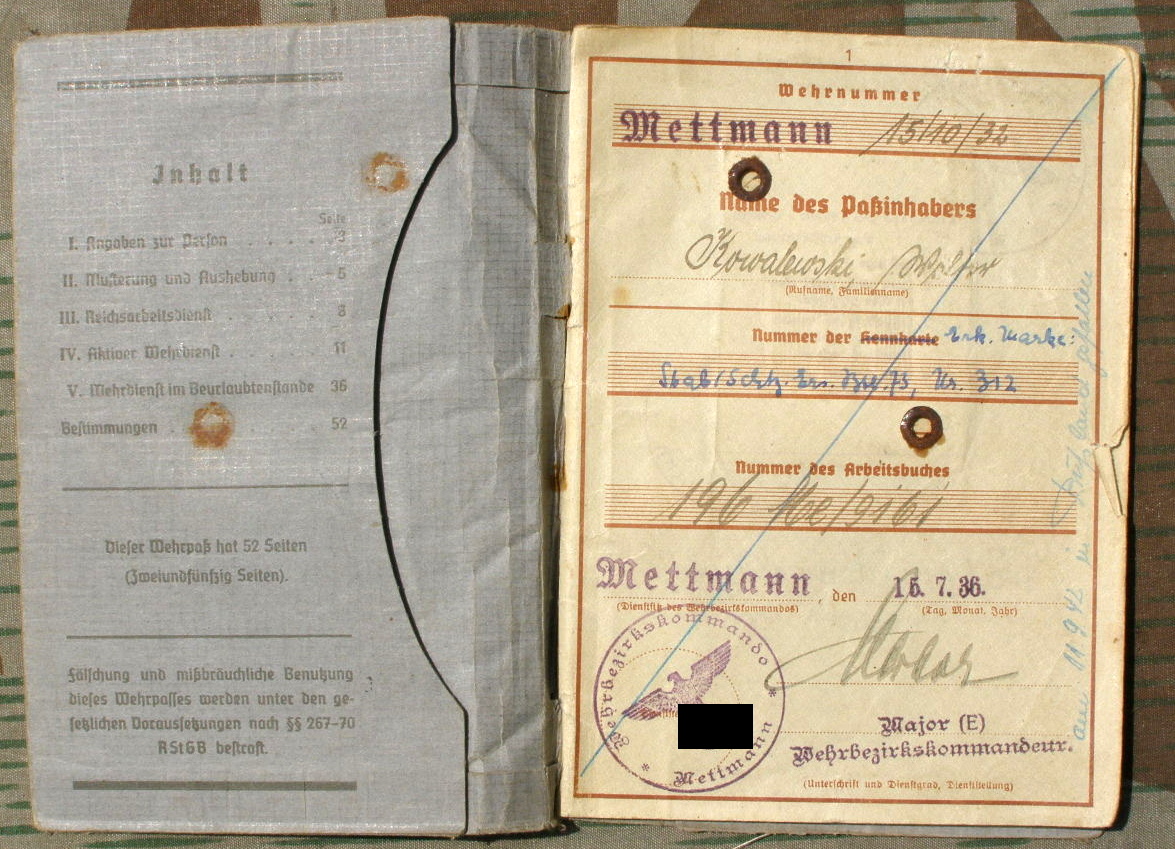 Inhalt
Seite
I. Angaben zur Person . . . . . 3
II. Musterung und Aushebung . . . 5
III. Reichsarbeitsdienst . . . . . 8
IV. Aktiver Wehrdienst . . . . . 11
V. Wehrdienst im Beurlaubtenstande 36
Bestimmungen . . . . 52
Dieser Wehrpaß hat 52 Seiten
(Zweiundfünfzig Seiten).
Fälschung und mißbräuchliche Benutzung
dieses Wehrpasses werden unter den ge-
setzlichen Voraussetzungen nach §§ 267-70
RStGB bestraft.
1
Wehrnummer
Mettmann 15/10/32
Name des Paßinhabers
Kowalewski Walter
(Rufname, Familienname)
Nummer der Kennkarte Erk. Marke:
Stab/Schtz. Ers. Btl. 73, Nr. 312
Nummer des Arbeitsbuches
196 Me/9161
Mettmann, den 15. 7. 36.
(Dienstsitz des Wehrbezirkskommandos) (Tag, Monat, Jahr)
Wehrbezirkskommando
* Mettmann *
Major (E)
Wehrbezirkskommandeur.
(Unterschrift und Dienstgrad, Dienststellung)
am 11 9 42 in Rußland gefallen